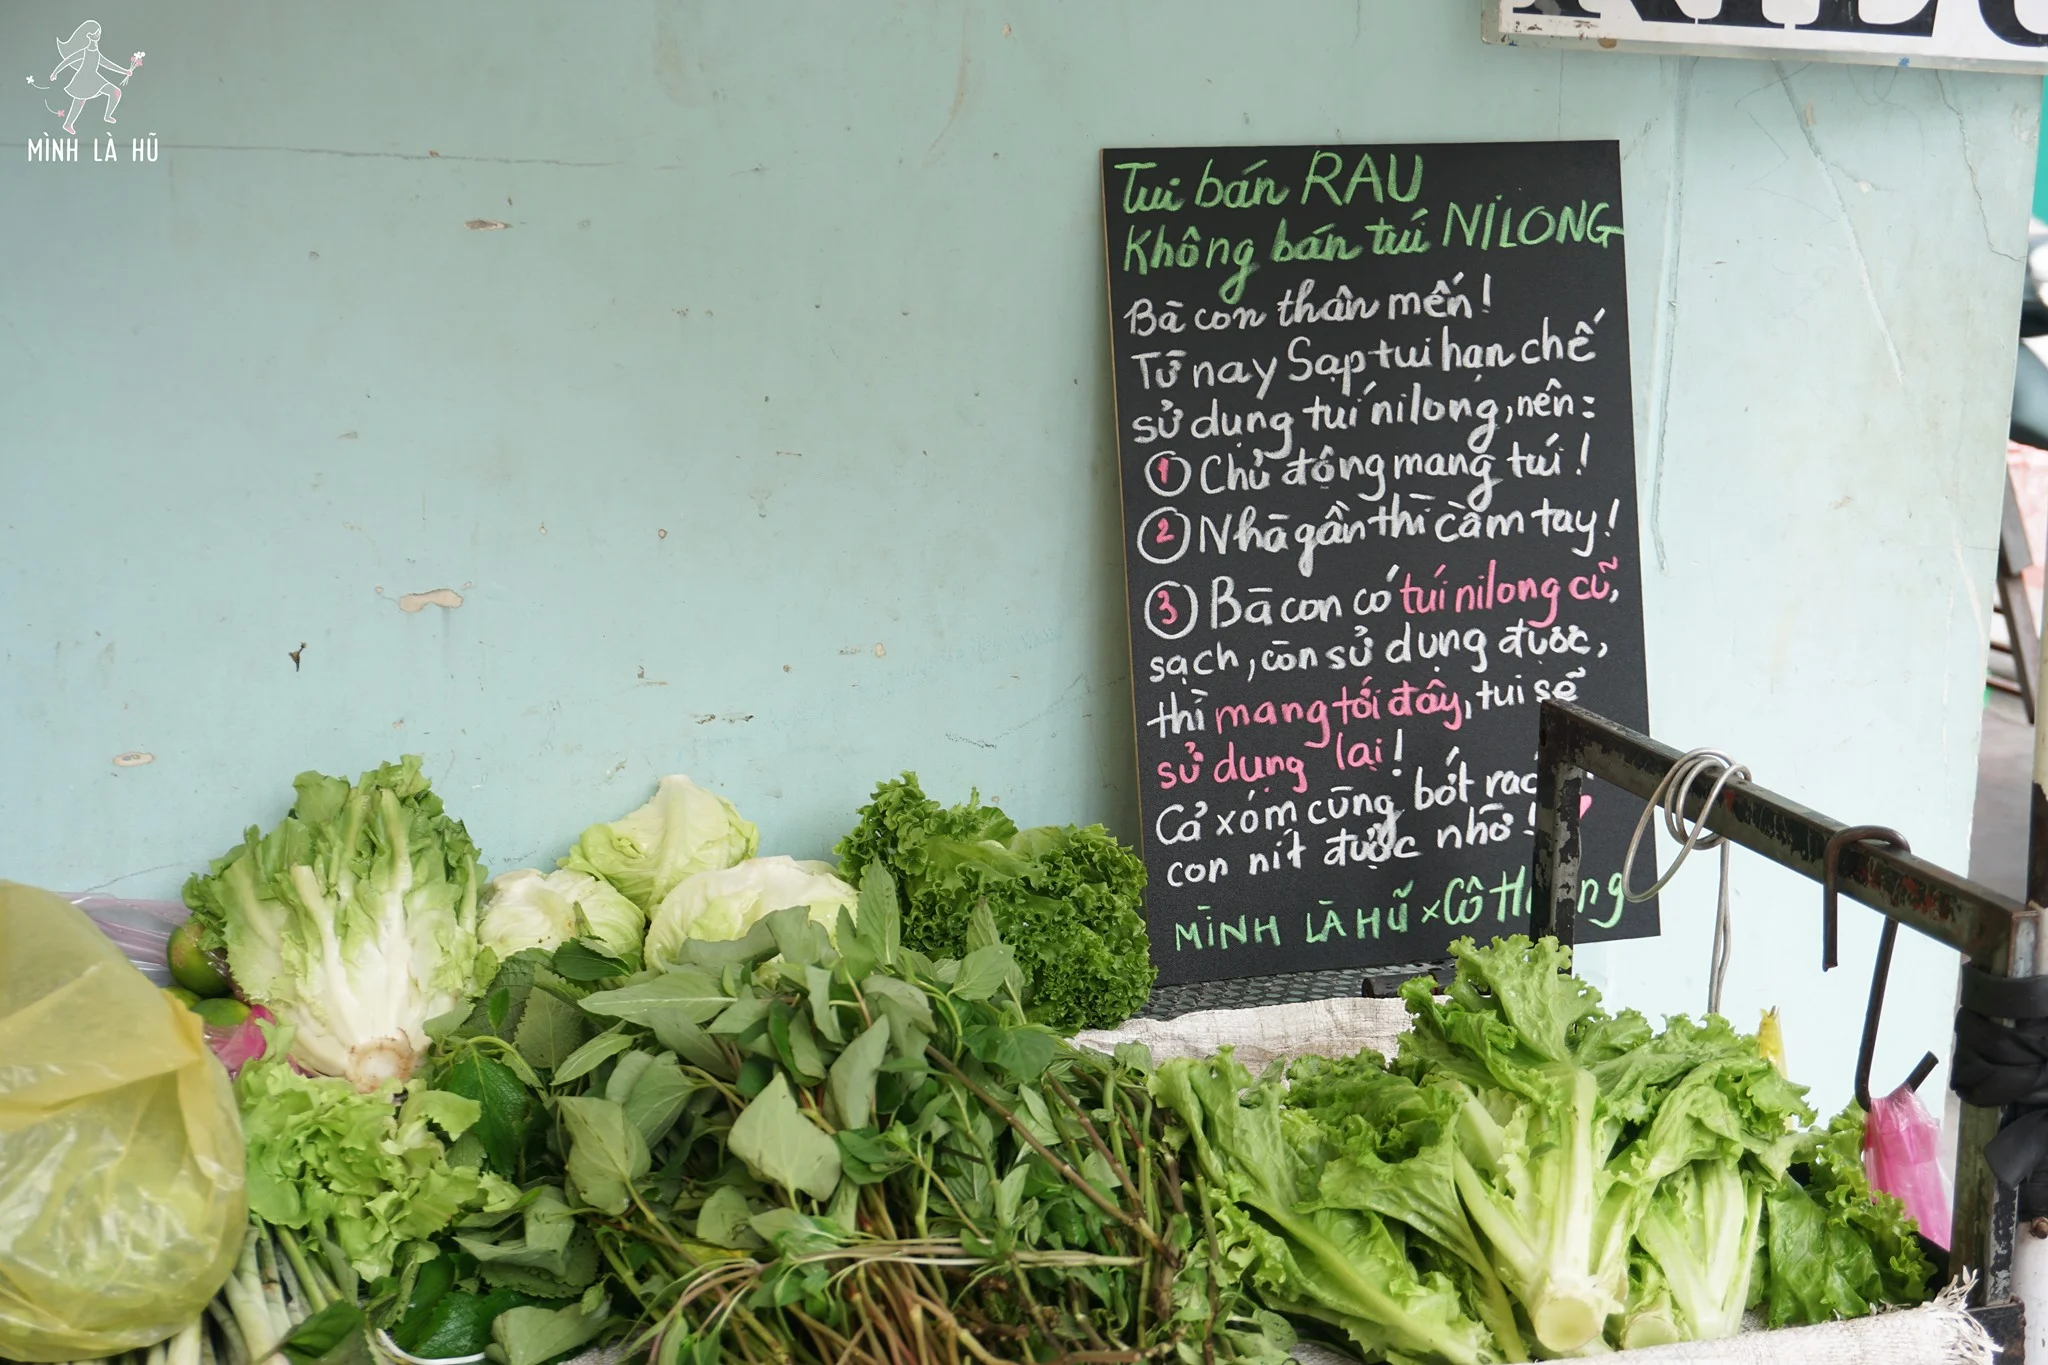 MÌNH LÀ HŨ
Tui bán RAU
Không bán túi NILONG
Bà con thân mến!
Từ nay Sạp tui hạn chế
sử dụng túi nilong, nên:
1 Chủ động mang túi!
2 Nhà gần thì cầm tay!
3 Bà con có túi nilong cũ,
sạch, còn sử dụng được,
thì mang tới đây, tui sẽ
sử dụng lại!
Cả xóm cùng bớt
con nít được nhờ!
MÌNH LÀ HŨ x Cô